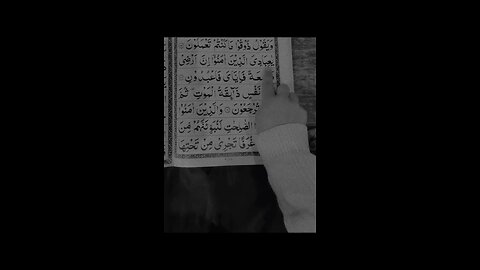 وَيَقُوۡلُ ذُوۡقُوۡا مَا كُنۡتُمۡ تَعۡمَلُوۡنَ
يٰعِبَادِىَ الَّذِيۡنَ اٰمَنُوۡۤا اِنَّ اَرۡضِىۡ
فَاِيَّاىَ فَاعۡبُدُوۡنِ
نَفۡسٍ ذَآئِقَةُ الۡمَوۡتِ ثُمَّ
تُرۡجَعُوۡنَ وَالَّذِيۡنَ اٰمَنُوۡا
الصّٰلِحٰتِ لَنُبَوِّئَنَّهُمۡ مِّنَ
غُرَفًا تَجۡرِىۡ مِنۡ تَحۡتِهَا